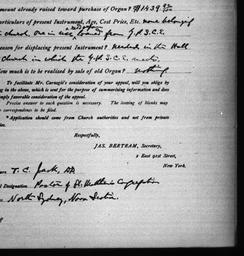 mount already raised toward purchase of Organ? $1439.
rticulars of present Instrument, Age, Cost Price, Etc. none belonging
church one in use loaned from Y.P.S.C.E.
eason for displacing present Instrument? Needed in the Hall
Church in which the Y.P.S.C.E. meets.
ow much is to be realised by sale of old Organ? nothing
To facilitate Mr. Carnegie's consideration of your appeal, will you please fi
ing in the above, which is sent for the purpose of summarizing information and does
imply favorable consideration of the appeal.
Precise answer to each question is necessary. The issuing of blanks may
as corresponden to be returned.
* Application should come from Church authorities and not from private
Respectfully,
JAS. BERTRAM, Secretary,
2 East 91st Street,
New York.
T. C. Jack,
Designation. Pastor of St. Matthew's Congregation
North Sydney, Nova Scotia.